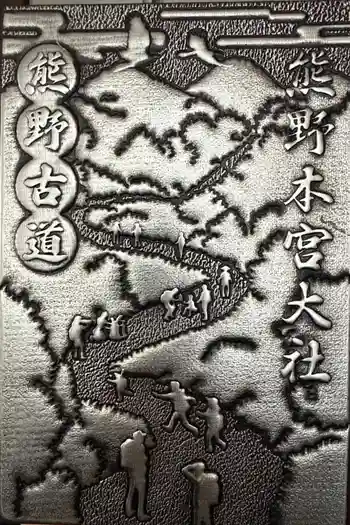 熊野本宮大社
熊野古道